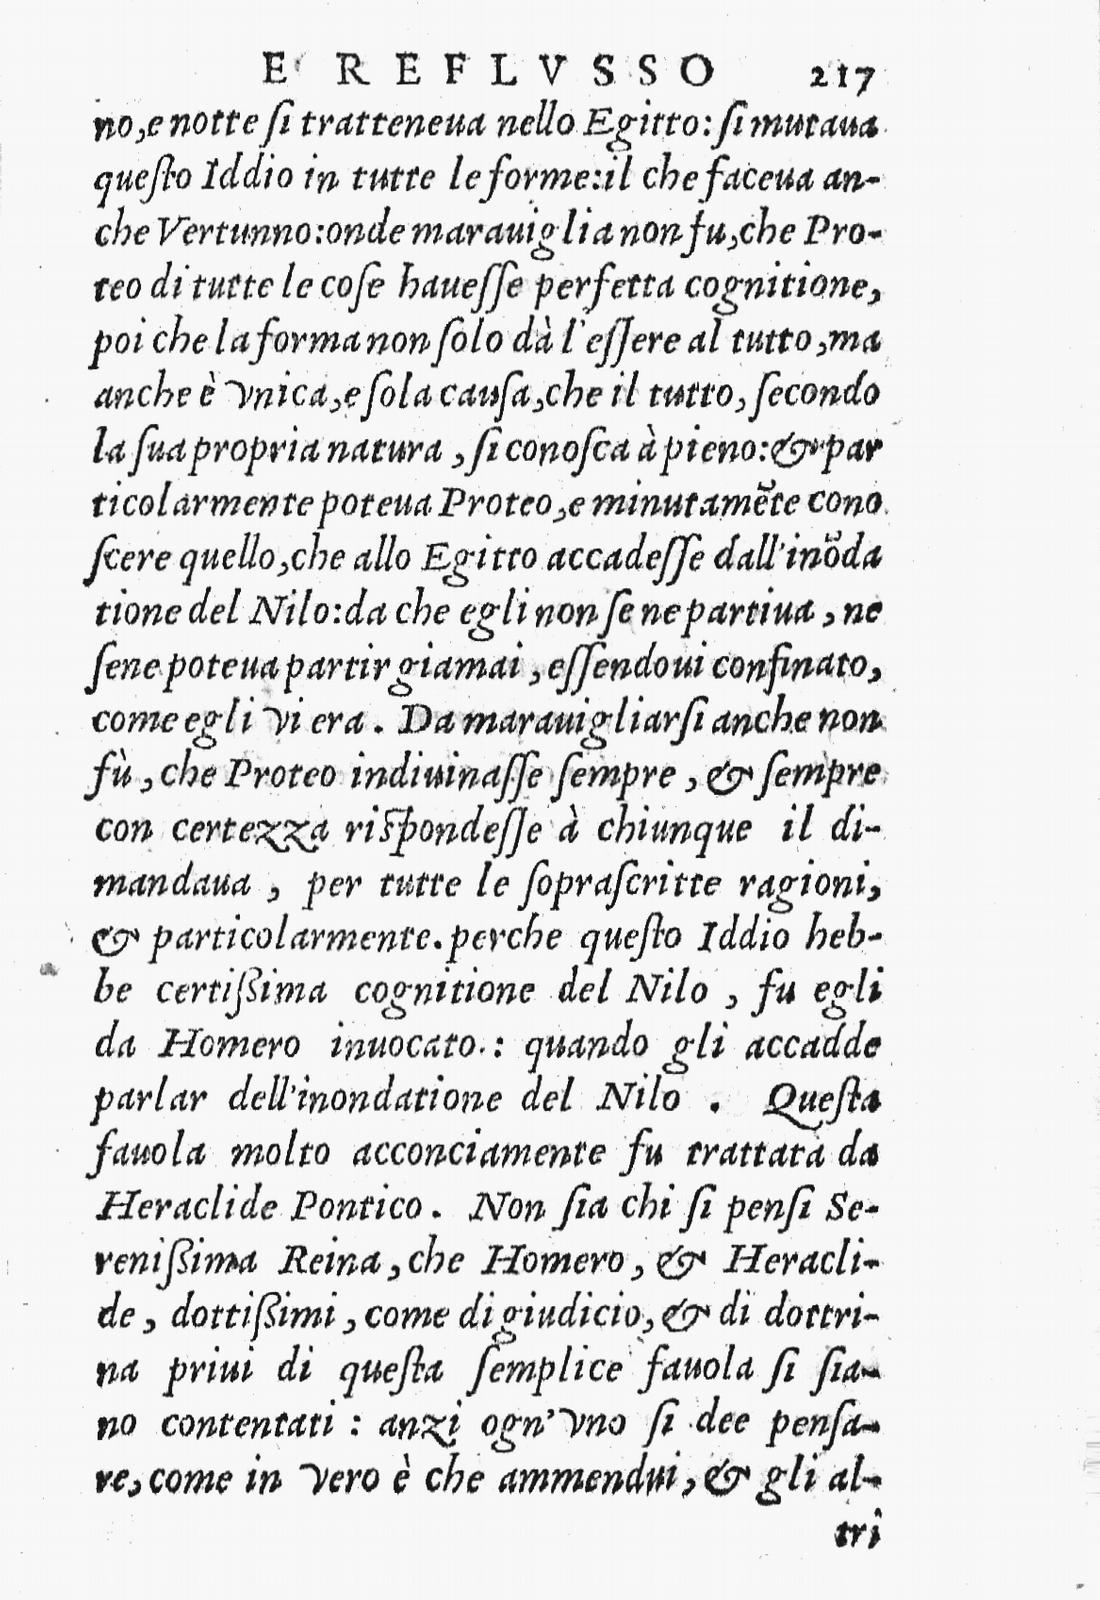 E REFLVSSO 217
no, e notte ſi tratteneua nello Egitto: ſi mutaua
queſto Iddio in tutte le forme: il che faceua an-
che Vertunno: onde marauiglia non fu, che Pro-
teo di tutte le coſe haueſſe perfetta cognitione,
poi che la forma non ſolo dà l'eſſere al tutto, ma
anche è vnica, e ſola cauſa, che il tutto, ſecondo
la ſua propria natura, ſi conoſca à pieno: & par
ticolarmente poteua Proteo, e minutamẽte cono
ſcere quello, che allo Egitto accadeſſe dall'inõda
tione del Nilo: da che egli non ſe ne partiua, ne
ſene poteua partir giamai, eſſendoui confinato,
come egli vi era. Da marauigliarſi anche non
fù, che Proteo indiuinaſſe ſempre, & ſempre
con certezza riſpondeſſe à chiunque il di-
mandaua, per tutte le ſopraſcritte ragioni,
& particolarmente. perche queſto Iddio heb-
be certißima cognitione del Nilo, fu egli
da Homero inuocato: quando gli accadde
parlar dell'inondatione del Nilo. Queſta
fauola molto acconciamente fu trattata da
Heraclide Pontico. Non ſia chi ſi penſi Se-
renißima Reina, che Homero, & Heracli-
de, dottißimi, come di giudicio, & di dottri-
na priui di queſta ſemplice fauola ſi ſia-
no contentati: anzi ogn'vno ſi dee penſa-
re, come in vero è che ammendui, & gli al-
tri